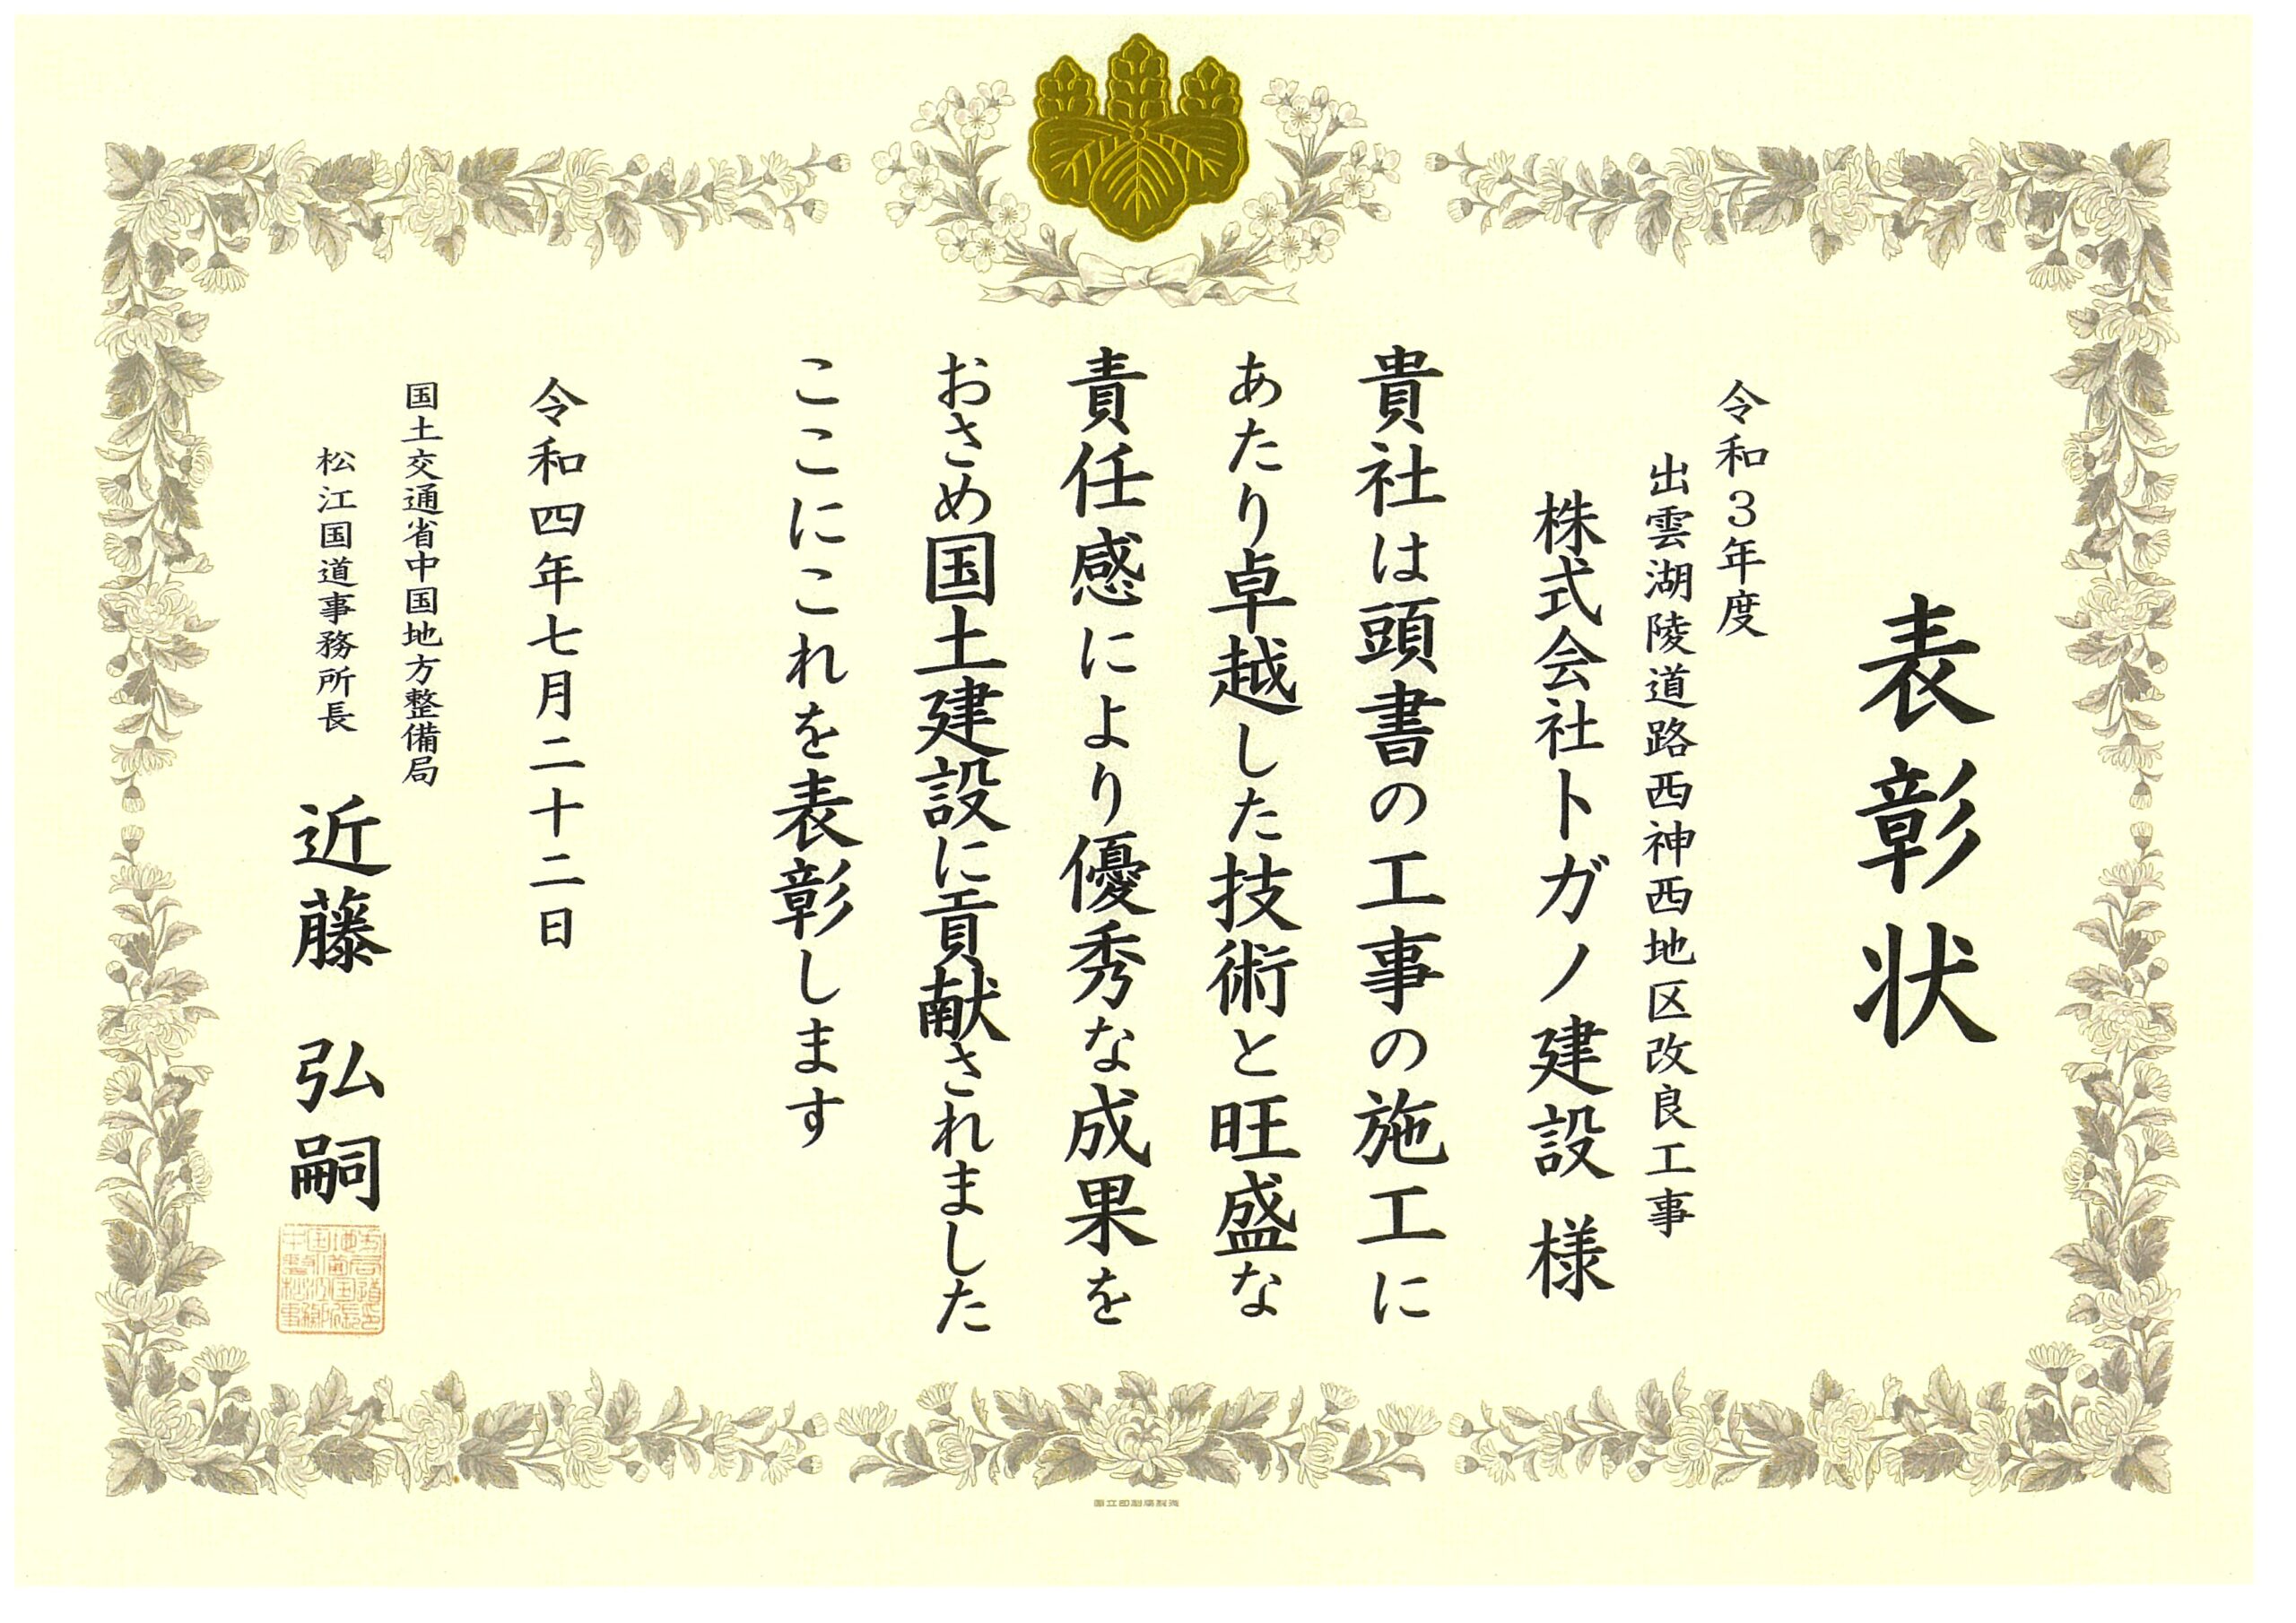 表彰状
令和3年度
出雲湖陵道路西神西地区改良工事
株式会社トガノ建設 様
貴社は頭書の工事の施工に
あたり卓越した技術と旺盛な
責任感により優秀な成果を
おさめ国土建設に貢献されました
ここにこれを表彰します
令和四年七月二十二日
国土交通省中国地方整備局
松江国道事務所長
近藤 弘嗣